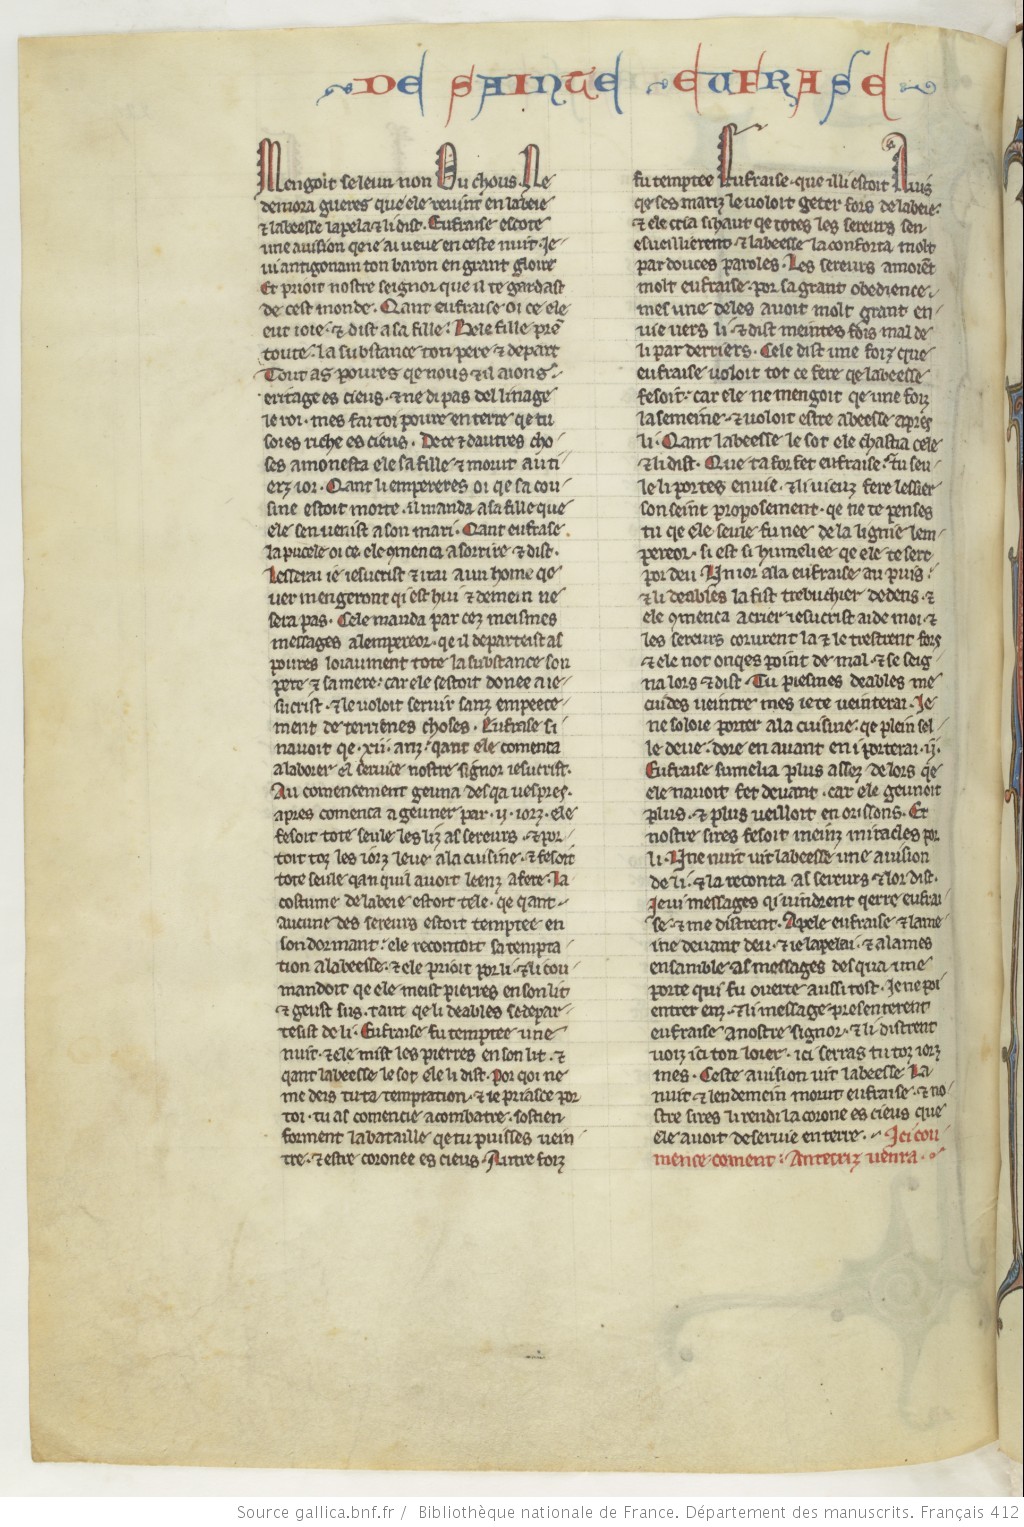 DE SAINTE EUFRASE
Mengoit se leun non Ou chous. Ne
demora gueres que ele revint en labeie
⁊ labeesse lapela ⁊ li dist. Eufraise escote
une avision qe ie ai veue en ceste nuit. Je
vi antigonam ton baron en grant gloire
Et prioit nostre seignor que il te gardast
de cest monde. Qant eufraise oi ce ele
eut ioie. ⁊ dist a sa fille. Bele fille prē
toute la substance ton pere ⁊ depart
Tout as poures qe nous ⁊ il aions
eritage es cieus. ⁊ ne di pas del linage
le roi. mes fai toi poure en terre qe tu
soies riche es cieus. De ce ⁊ dautres cho
ses amonesta ele sa fille ⁊ morut au ti
erz ior. Qant li empereres oi qe sa cou
sine estoit morte. il manda a sa fille que
ele sen venist a son mari. Qant eufrase
la pucele oi ce. ele 9menca a sorrire ⁊ dist.
Lesserai ie iesucrist ⁊ irai a un home qe
ver mengeront qi est hui ⁊ demein ne
sera pas. Cele manda par cez meismes
messages a lempereor. qe il departeist as
poures loiaument tote la substance son
pere ⁊ sa mere. car ele sestoit donee a ie
sucrist. ⁊ le voloit servir sanz empeece
ment de terrienes choses. Eufrase si
navoit qe .xii. anz. qant ele comenca
a laborer el service nostre signor iesucrist.
Au comencement geuna desqa vespres.
apres comenca a geuner par .ii. iorz. ele
fesoit tote seule les liz as sereurs. ⁊ por
toit toz les iorz leve a la cuisine. ⁊ fesoit
tote seule qan quil avoit leenz a fere. La
costume de labeie estoit tele. qe qant
aucune des sereurs estoit temptee en
son dormant. ele recontoit sa tempta
tion a labeesse. ⁊ ele prioit por li. ⁊ li cou
mandoit qe ele meist pierres en son lit
⁊ geust sus. tant qe li deables se depar
tesist de li. Eufraise fu temptee une
nuit. ⁊ ele mist les pierres en son lit. ⁊
qant labeesse le sot ele li dist. Por qoi ne
me deis tu ta temptation. ⁊ ie priasce por
toi. tu as comencie a combatre. sostien
forment la bataille qe tu puisses vein
tre. ⁊ estre coronee es cieus. Autre forz
fu temptee Eufraise. que illi estoit Auis
qe ses mariz le voloit geter fors de labeie.
⁊ ele cria si haut qe totes les sereurs sen
esveillierent. ⁊ labeesse la conforta molt
par douces paroles. Les sereurs amoiēt
molt eufraise. por sa grant obedience.
mes une deles avoit molt grant en
vie vers li. ⁊ dist meintes fois mal de
li par derriers. Cele dist une forz que
eufraise voloit tot ce fere qe labeesse
fesoit. car ele ne mengoit qe une forz
la semeine. ⁊ voloit estre abeesse apres
li. Qant labeesse le sot ele chastia cele
⁊ li dist. Que ta forfet eufraise. tu seu
le li portes envie. ⁊ li vieuz fere lessier
son seint proposement. qe ne te penses
tu qe ele seule fu nee de la lignie lem
pereor. si est si humeliee qe ele te sert
por deu. Un ior ala eufraise au puis.
⁊ li deables la fist trebuchier dedens. ⁊
ele 9menca a crier iesucrist aide moi. ⁊
les sereurs corurent la ⁊ le trestrent fors
⁊ ele not onqes point de mal. ⁊ se seig
na lors ⁊ dist. Tu piesmes deables me
cuides veintre. mes ie te veinterai. Je
ne soloie porter a la cuisine. qe plein sel
le deve. dore en avant en i porterai .ii.
Eufraise sumelia plus assez de lors qe
ele navoit fet devant. car ele geunoit
plus. ⁊ plus veilloit en orissons. Et
nostre sires fesoit meinz miracles por
li. Une nuit vit labeesse une avision
de li. ⁊ la reconta as sereurs ⁊ lor dist.
Je vi messages qi vindrent qerre eufrai
se. ⁊ me distrent. Apele eufraise ⁊ lame
ine devant deu. ⁊ ie lapelai. ⁊ alames
ensamble as messages desqua une
porte qui fu overte aussi tost. Je ne poi
entrer enz. ⁊ li message presenterent
eufraise a nostre signor. ⁊ li distrent
voiz ici ton loier. ici serras tu toz iorz
mes. Ceste avision vit labeesse La
nuit. ⁊ lendemein morut eufraise. ⁊ no
stre sires li rendi la corone es cieus que
ele avoit deservie en terre. Ici cou
mence coment. Antecriz venra.
Source gallica.bnf.fr / Bibliothèque nationale de France. Département des manuscrits. Français 412